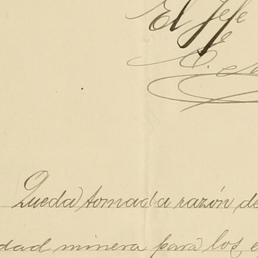 El Jefe
Queda tomada razón de
dad minera para los